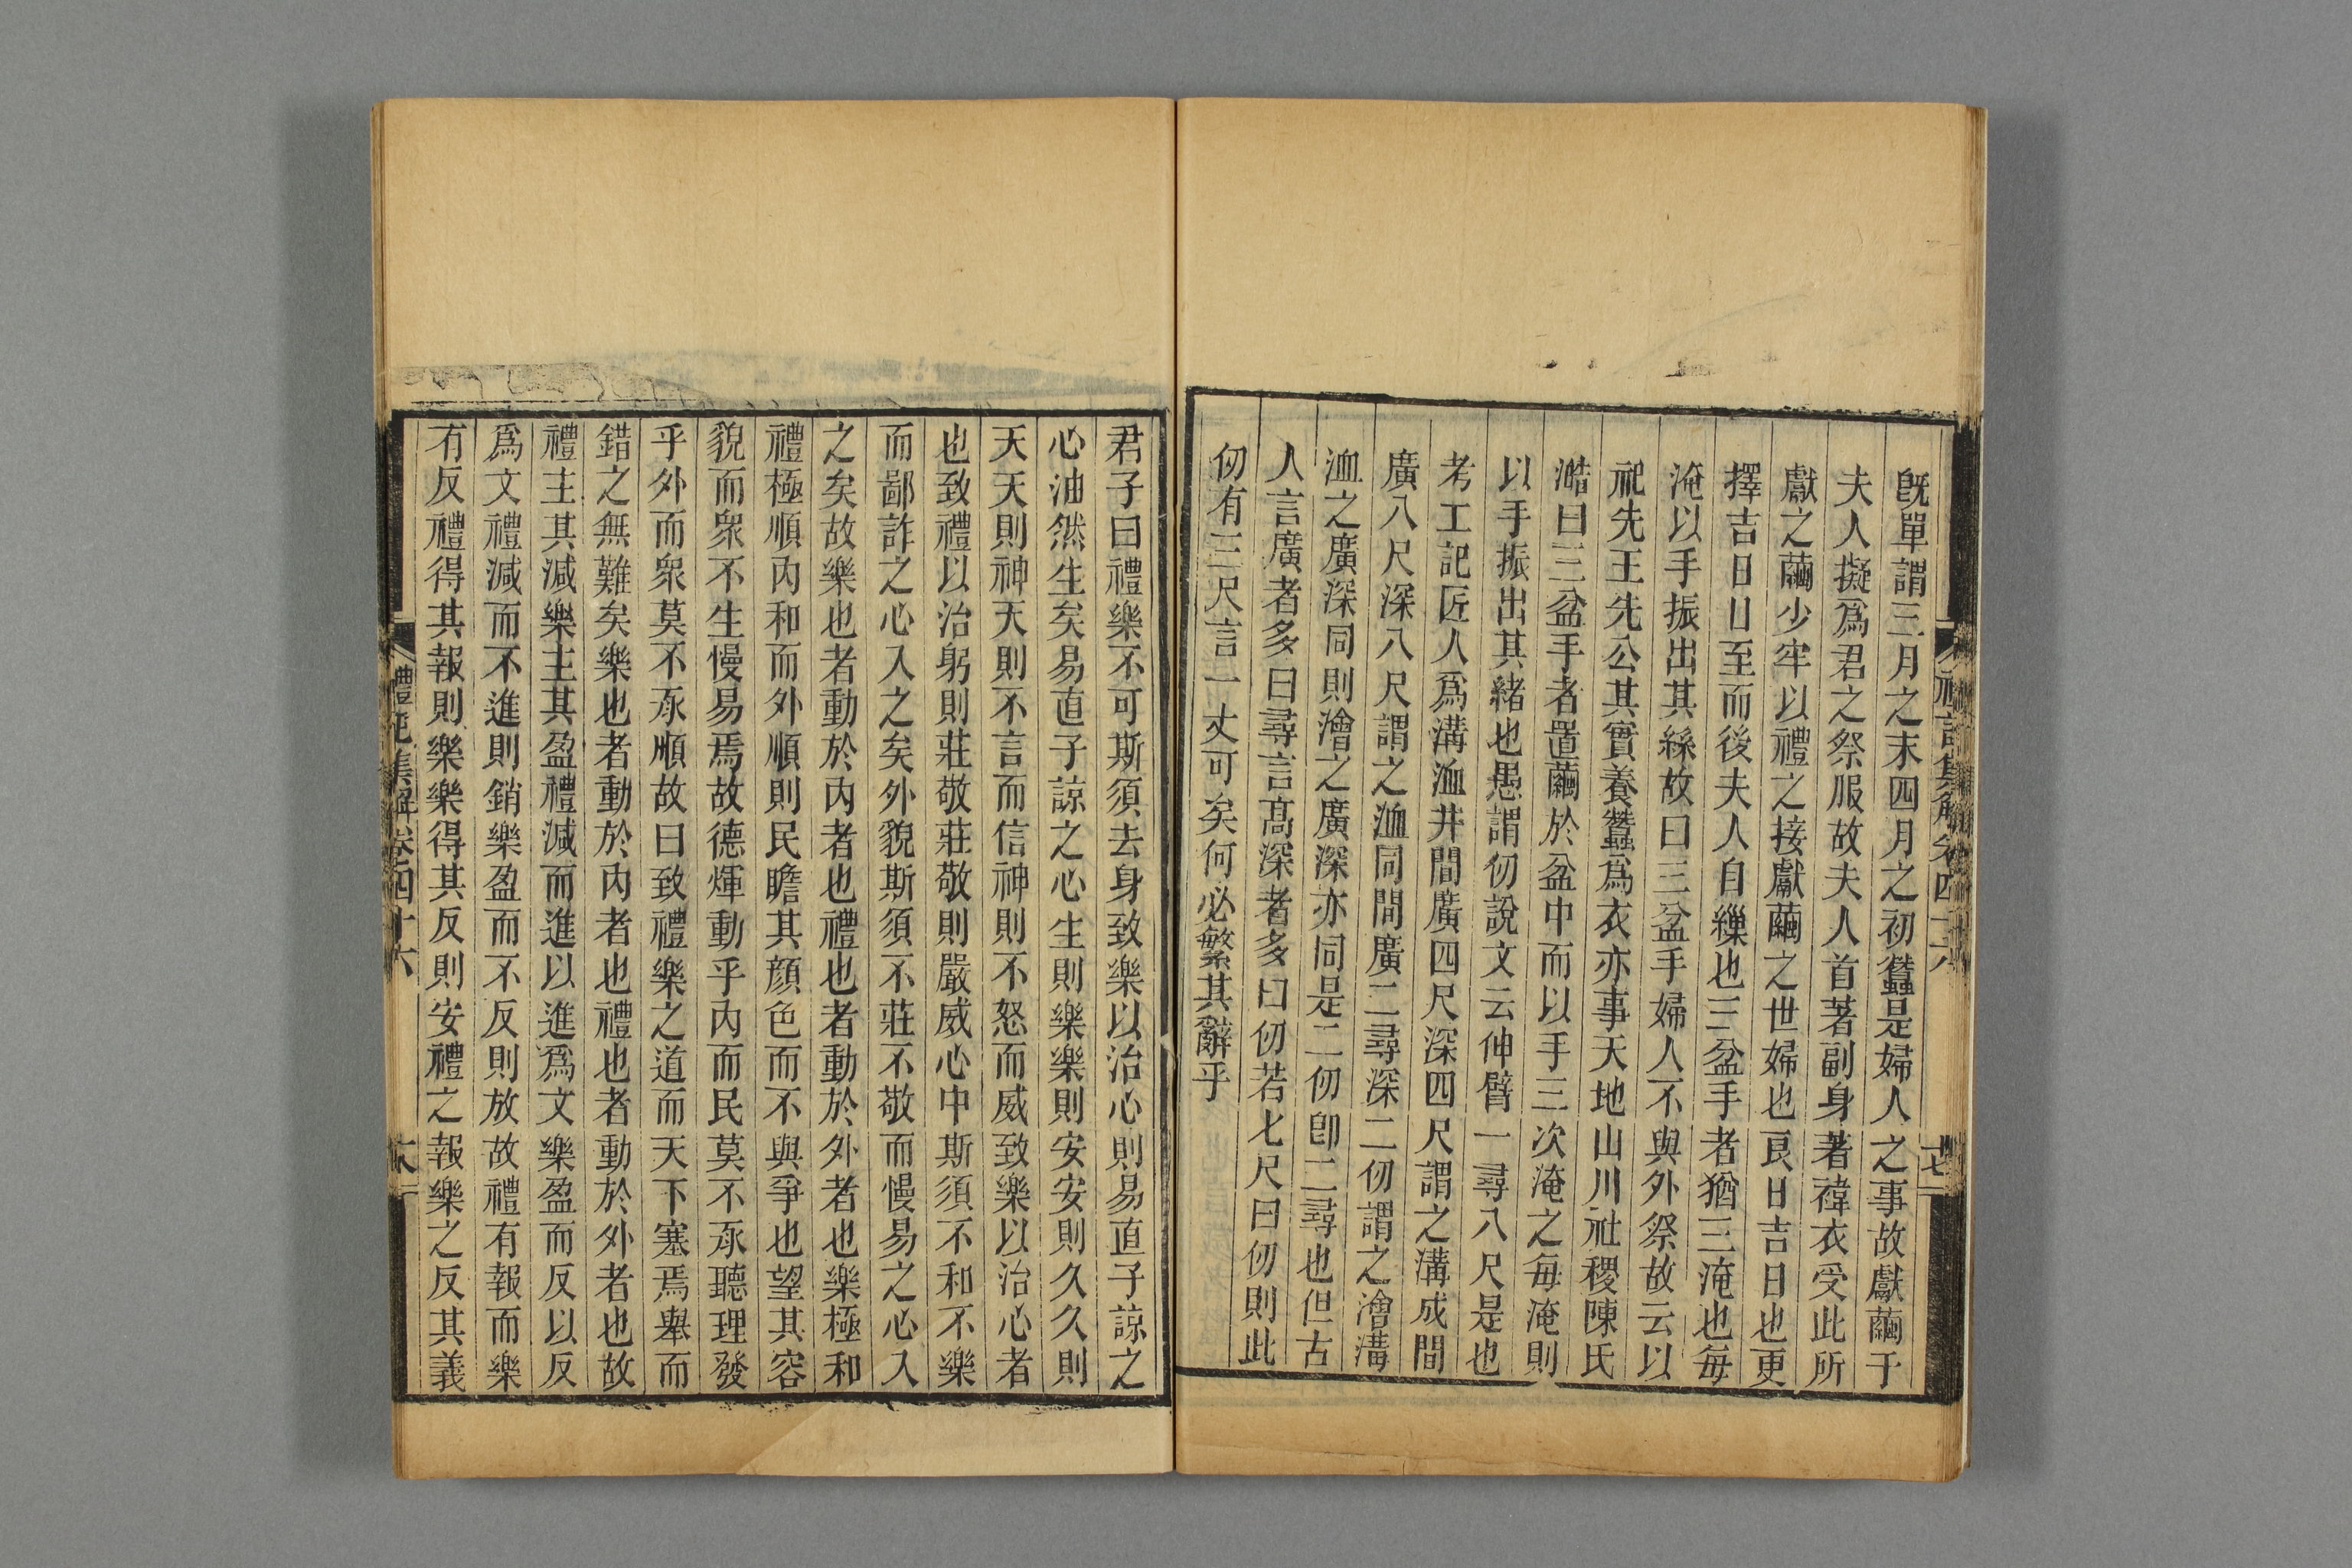 禮記集解卷四十六
十七
既單謂三月之末四月之初蠶是婦人之事故獻繭于
夫人擬爲君之祭服故夫人首著副身著褘衣受此所
獻之繭少牢以禮之接獻繭之世婦也良日吉日也更
擇吉日日至而後夫人自繅也三盆手者猶三淹也每
淹以手振出其絲故曰三盆手婦人不與外祭故云以
祀先王先公其實養蠶爲衣亦事天地山川社稷陳氏
澔曰三盆手者置繭於盆中而以手三次淹之每淹則
以手振出其緒也愚謂仞說文云伸臂一尋八尺是也
考工記匠人爲溝洫井間廣四尺深四尺謂之溝成間
廣八尺深八尺謂之洫同間廣二尋深二仞謂之澮溝
洫之廣深同則澮之廣深亦同是二仞卽二尋也但古
人言廣者多曰尋言高深者多曰仞若七尺曰仞則此
仞有三尺言一丈可矣何必繁其辭乎
君子曰禮樂不可斯須去身致樂以治心則易直子諒之
心油然生矣易直子諒之心生則樂樂則安安則久久則
天天則神天則不言而信神則不怒而威致樂以治心者
也致禮以治躬則莊敬莊敬則嚴威心中斯須不和不樂
而鄙詐之心入之矣外貌斯須不莊不敬而慢易之心入
之矣故樂也者動於內者也禮也者動於外者也樂極和
禮極順內和而外順則民瞻其顏色而不與爭也望其容
貌而衆不生慢易焉故德煇動乎內而民莫不承聽理發
乎外而衆莫不承順故曰致禮樂之道而天下塞焉舉而
錯之無難矣樂也者動於內者也禮也者動於外者也故
禮主其減樂主其盈禮減而進以進爲文樂盈而反以反
爲文禮減而不進則銷樂盈而不反則放故禮有報而樂
有反禮得其報則樂樂得其反則安禮之報樂之反其義
禮記集解卷四十六